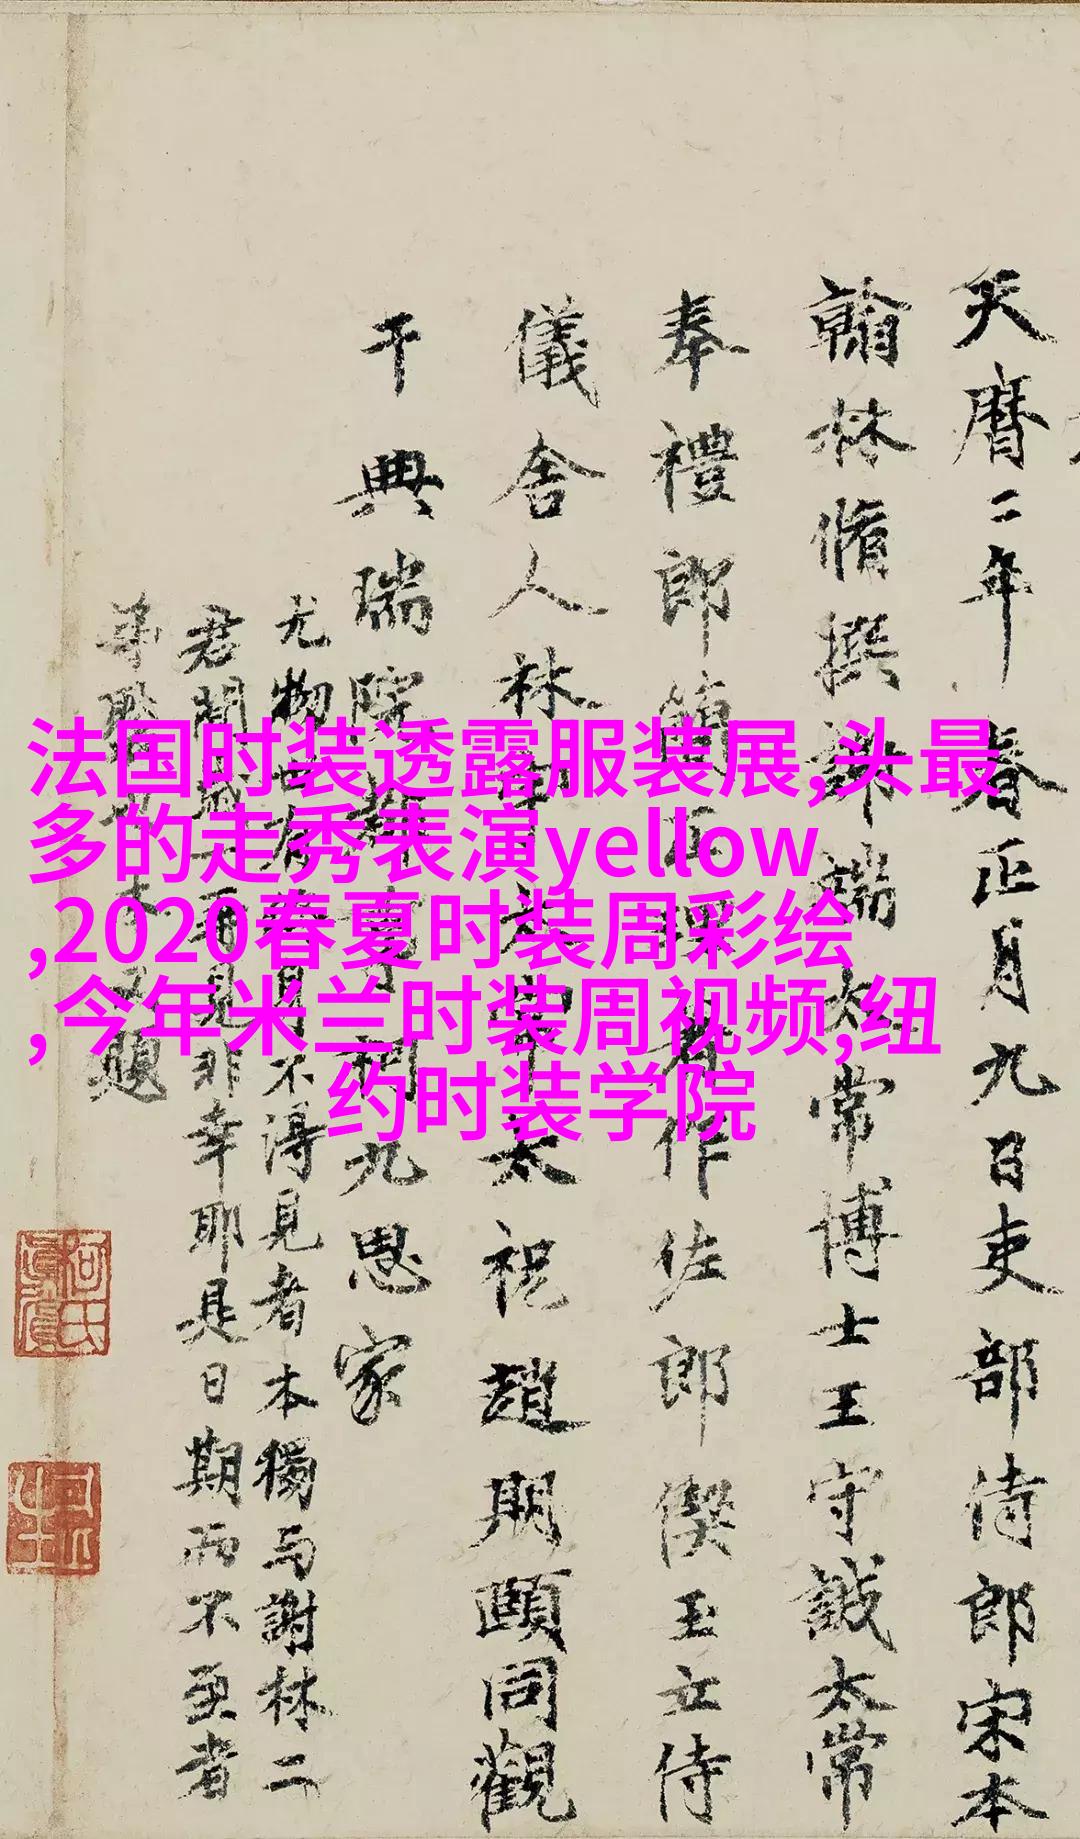 法国时装透露服装展,头最
多的走秀表演yellow
,2020春夏时装周彩绘
,今年米兰时装周视频,纽
约时装学院
天曆二年春正月九日吏部侍郎宋本
翰林脩撰謝端太常博士王守誠太常
奉禮郎簡正理著作佐郎偰玉立侍
儀舍人林宇太常太祝趙期頤同觀
于典瑞院都事柯九思家
尤物世有善者不得見者本獨与謝林二
君間歲一再見非幸耶是日期而不至者